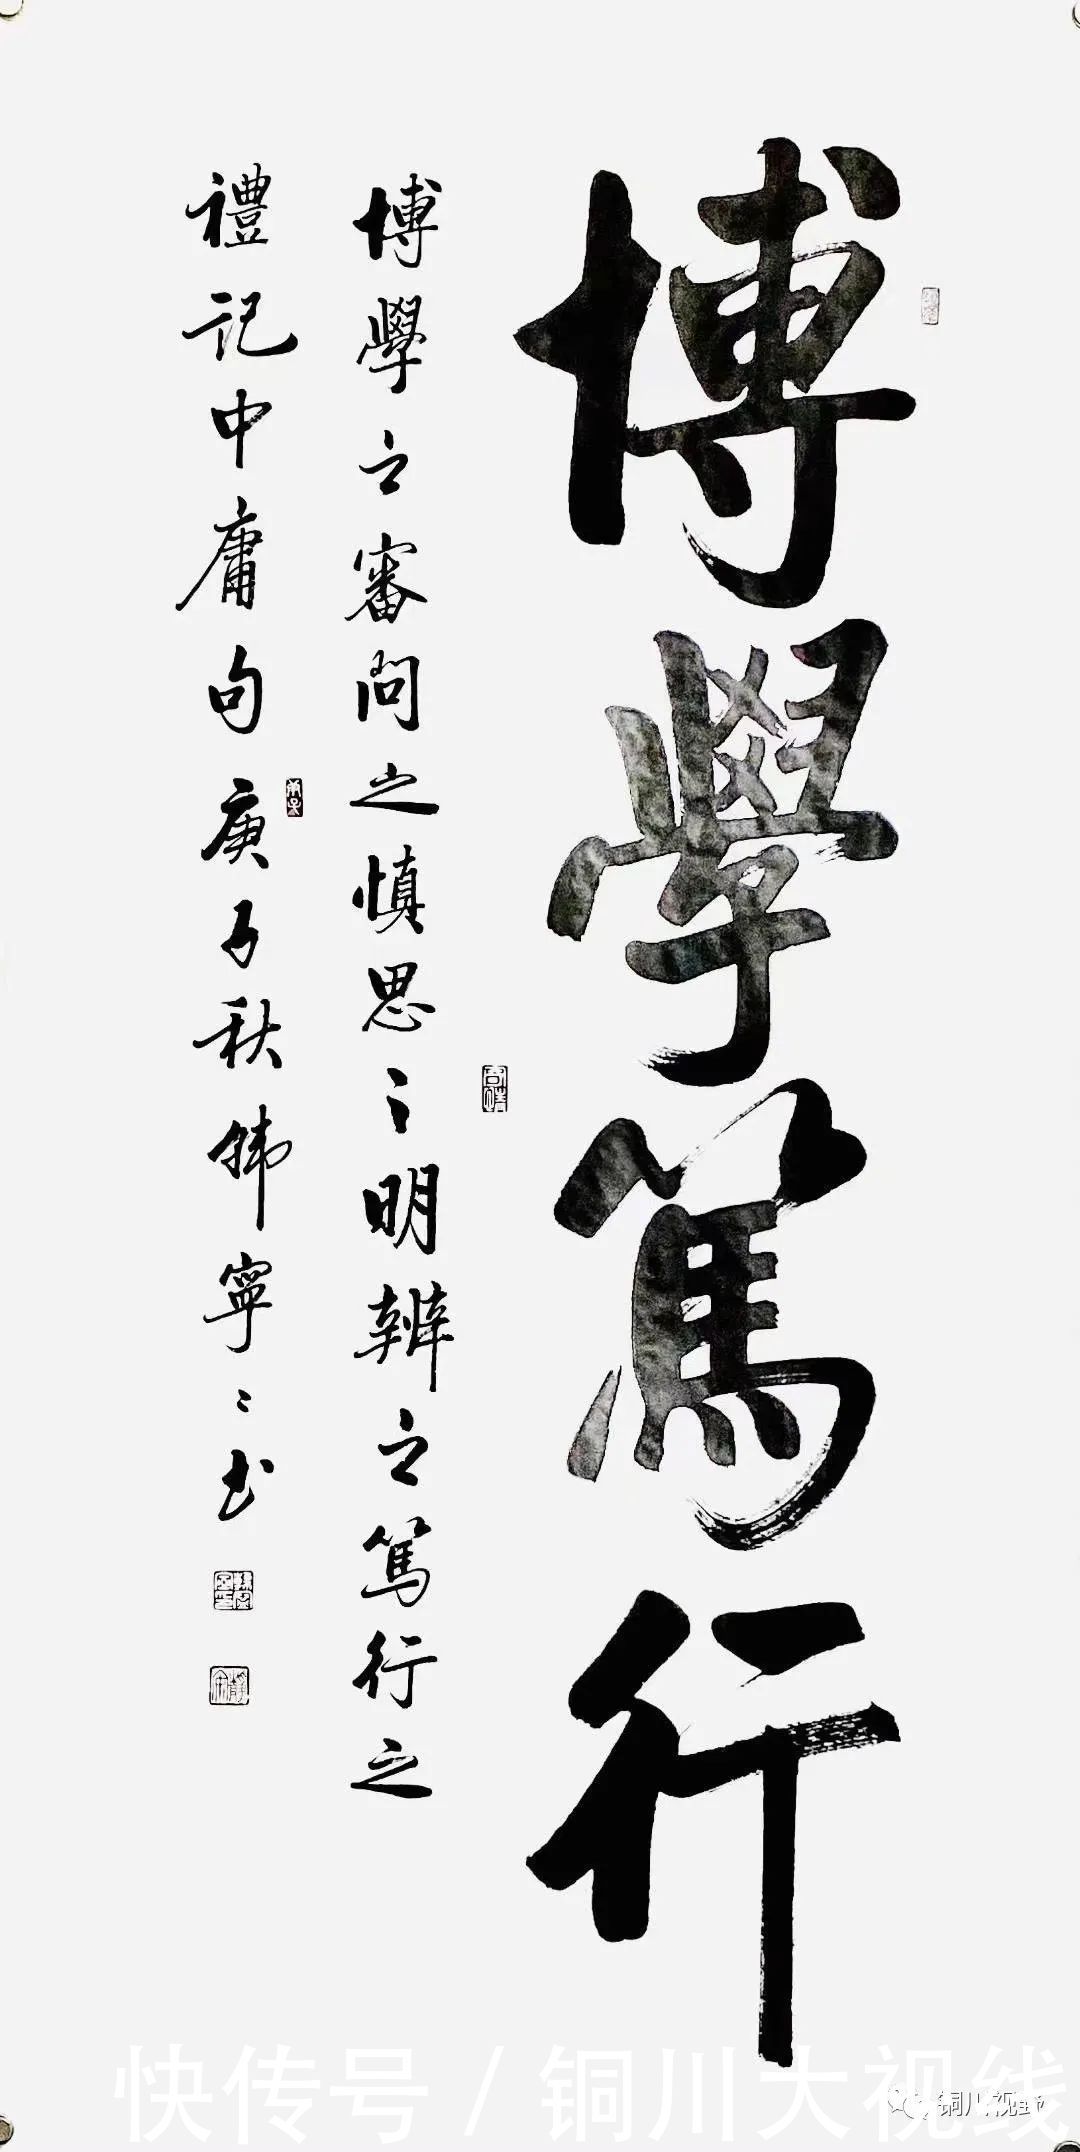 博學篤行
博學之審問之慎思之明辨之篤行之
禮記中庸句庚子秋韩寧寧书
快传号/铜川大视线
铜川视野